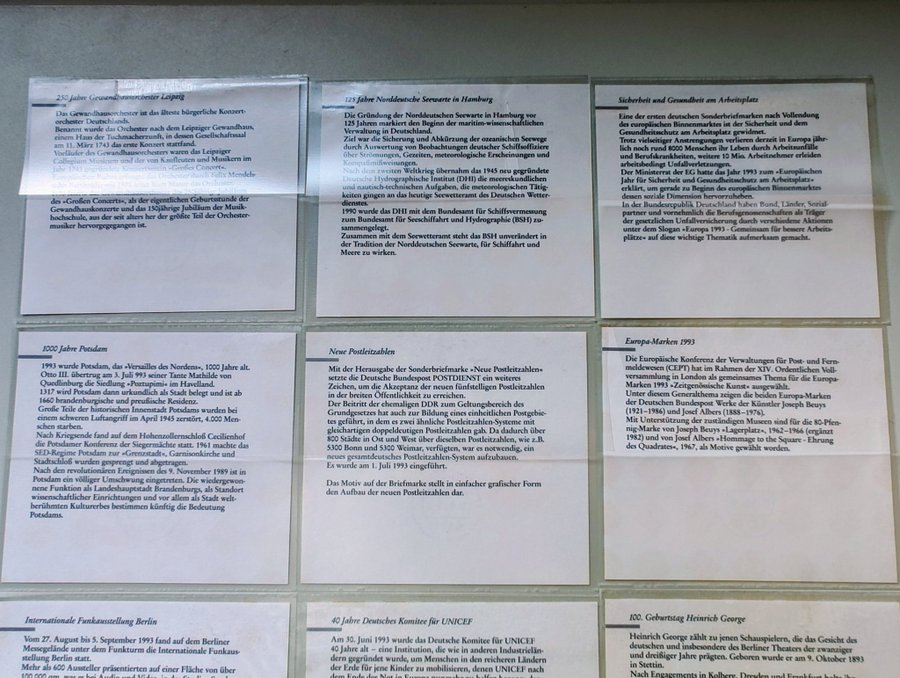 250 Jahre Gewandhausorchester Leipzig
Das Gewandhausorchester ist das älteste bürgerliche Konzert-
orchester Deutschlands.
Benannt wurde das Orchester nach dem Leipziger Gewandhaus,
einem Haus der Tuchmacherzunft, in dessen Gesellschaftssaal
am 11. März 1743 das erste Konzert stattfand.
Vorläufer des Gewandhausorchesters waren das Leipziger
Collegium Musicum und der von Kaufleuten und Musikern im
Jahr 1743 gegründete Konzertverein »Großes Concert«.
des »Großen Concerts«, als der eigentlichen Geburtsstunde der
Gewandhauskonzerte und das 150jährige Jubiläum der Musik-
hochschule, aus der seit alters her der größte Teil der Orchester-
musiker hervorgegangen ist.
125 Jahre Norddeutsche Seewarte in Hamburg
Die Gründung der Norddeutschen Seewarte in Hamburg vor
125 Jahren markiert den Beginn der maritim-wissenschaftlichen
Verwaltung in Deutschland.
Ziel war die Sicherung und Abkürzung der ozeanischen Seewege
durch Auswertung von Beobachtungen deutscher Schiffsoffiziere
über Strömungen, Gezeiten, meteorologische Erscheinungen und
Kompaßmißweisungen.
Nach dem zweiten Weltkrieg übernahm das 1945 neu gegründete
Deutsche Hydrographische Institut (DHI) die meereskundlichen
und nautisch-technischen Aufgaben, die meteorologischen Tätig-
keiten gingen an das heutige Seewetteramt des Deutschen Wetter-
dienstes.
1990 wurde das DHI mit dem Bundesamt für Schiffsvermessung
zum Bundesamt für Seeschiffahrt und Hydrographie (BSH) zu-
sammengelegt.
Zusammen mit dem Seewetteramt steht das BSH unverändert in
der Tradition der Norddeutschen Seewarte, für Schiffahrt und
Meere zu wirken.
Sicherheit und Gesundheit am Arbeitsplatz
Eine der ersten deutschen Sonderbriefmarken nach Vollendung
des europäischen Binnenmarktes ist der Sicherheit und dem
Gesundheitsschutz am Arbeitsplatz gewidmet.
Trotz vielseitiger Anstrengungen verlieren derzeit in Europa jähr-
lich noch rund 8000 Menschen ihr Leben durch Arbeitsunfälle
und Berufskrankheiten, weitere 10 Mio. Arbeitnehmer erleiden
arbeitsbedingt Unfallverletzungen.
Der Ministerrat der EG hatte das Jahr 1993 zum »Europäischen
Jahr für Sicherheit und Gesundheitsschutz am Arbeitsplatz«
erklärt, um gerade zu Beginn des europäischen Binnenmarktes
dessen soziale Dimension hervorzuheben.
In der Bundesrepublik Deutschland haben Bund, Länder, Sozial-
partner und vornehmlich die Berufsgenossenschaften als Träger
der gesetzlichen Unfallversicherung durch verschiedene Aktionen
unter dem Slogan »Europa 1993 - Gemeinsam für bessere Arbeits-
plätze« auf diese wichtige Thematik aufmerksam gemacht.
1000 Jahre Potsdam
1993 wurde Potsdam, das »Versailles des Nordens«, 1000 Jahre alt.
Otto III. übertrug am 3. Juli 993 seiner Tante Mathilde von
Quedlinburg die Siedlung »Poztupimi« im Havelland.
1317 wird Potsdam dann urkundlich als Stadt belegt und ist ab
1660 brandenburgische und preußische Residenz.
Große Teile der historischen Innenstadt Potsdams wurden bei
einem schweren Luftangriff im April 1945 zerstört, 4.000 Men-
schen starben.
Nach Kriegsende fand auf dem Hohenzollernschloß Cecilienhof
die Potsdamer Konferenz der Siegermächte statt. 1961 machte das
SED-Regime Potsdam zur »Grenzstadt«, Garnisonkirche und
Stadtschloß wurden gesprengt und abgetragen.
Nach den revolutionären Ereignissen des 9. November 1989 ist in
Potsdam ein völliger Umschwung eingetreten. Die wiedergewon-
nene Funktion als Landeshauptstadt Brandenburgs, als Standort
wissenschaftlicher Einrichtungen und vor allem als Stadt welt-
berühmten Kulturerbes bestimmen künftig die Bedeutung
Potsdams.
Neue Postleitzahlen
Mit der Herausgabe der Sonderbriefmarke »Neue Postleitzahlen«
setzte die Deutsche Bundespost POSTDIENST ein weiteres
Zeichen, um die Akzeptanz der neuen fünfstelligen Postleitzahlen
in der breiten Öffentlichkeit zu erreichen.
Der Beitritt der ehemaligen DDR zum Geltungsbereich des
Grundgesetzes hat auch zur Bildung eines einheitlichen Postgebie-
tes geführt, in dem es zwei ähnliche Postleitzahlen-Systeme mit
gleichartigen doppeldeutigen Postleitzahlen gab. Da dadurch über
800 Städte in Ost und West über dieselben Postleitzahlen, wie z.B.
5300 Bonn und 5300 Weimar, verfügten, war es notwendig, ein
neues gesamtdeutsches Postleitzahlen-System aufzubauen.
Es wurde am 1. Juli 1993 eingeführt.
Das Motiv auf der Briefmarke stellt in einfacher grafischer Form
den Aufbau der neuen Postleitzahlen dar.
Europa-Marken 1993
Die Europäische Konferenz der Verwaltungen für Post- und Fern-
meldewesen (CEPT) hat im Rahmen der XIV. Ordentlichen Voll-
versammlung in London als gemeinsames Thema für die Europa-
Marken 1993 »Zeitgenössische Kunst« ausgewählt.
Unter diesem Generalthema zeigen die beiden Europa-Marken
der Deutschen Bundespost Werke der Künstler Joseph Beuys
(1921–1986) und Josef Albers (1888–1976).
Mit Unterstützung der zuständigen Museen sind für die 80-Pfen-
nig-Marke von Joseph Beuys »Lagerplatz«, 1962–1966 (ergänzt
1982) und von Josef Albers »Hommage to the Square - Ehrung
des Quadrates«, 1967, als Motive gewählt worden.
Internationale Funkausstellung Berlin
Vom 27. August bis 5. September 1993 fand auf dem Berliner
Messegelände unter dem Funkturm die Internationale Funkaus-
stellung Berlin statt.
Mehr als 600 Aussteller präsentierten auf einer Fläche von über
40 Jahre Deutsches Komitee für UNICEF
Am 30. Juni 1993 wurde das Deutsche Komitee für UNICEF
40 Jahre alt – eine Institution, die wie in anderen Industrielän-
dern gegründet wurde, um Menschen in den reicheren Ländern
der Erde für jene Kinder zu mobilisieren, denen UNICEF nach
100. Geburtstag Heinrich George
Heinrich George zählt zu jenen Schauspielern, die das Gesicht des
deutschen und insbesondere des Berliner Theaters der zwanziger
und dreißiger Jahre prägten. Geboren wurde er am 9. Oktober 1893
in Stettin.
Nach Engagements in Kolberg, Dresden und Frankfurt